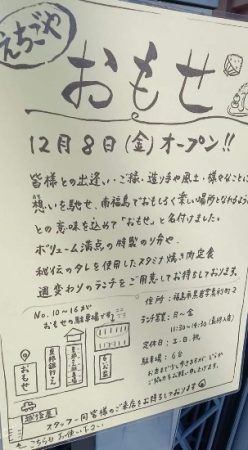 えちごや
おもせ
12月8日(金)オープン!!
皆様との出逢い・ご縁・造り手や風土・様々なことに
想いを馳せ、南福島でおもしろく楽しい場所となれるように
との意味を込めて「おもせ」と名付けました。
ボリューム満点の特製のり弁や
秘伝のタレを使用したスタミナ焼き肉定食
週変わりのランチをご用意してお待ちしております。
No.10~16まで
おもせの駐車場です
住所:福島市
ランチ営業:月~金
11:30~14:30
定休日:土・日・祝
駐車場:6台
おもせ
越後屋
スタッフ一同皆様のご来店をお待ちしております
こちらもお使い下さい